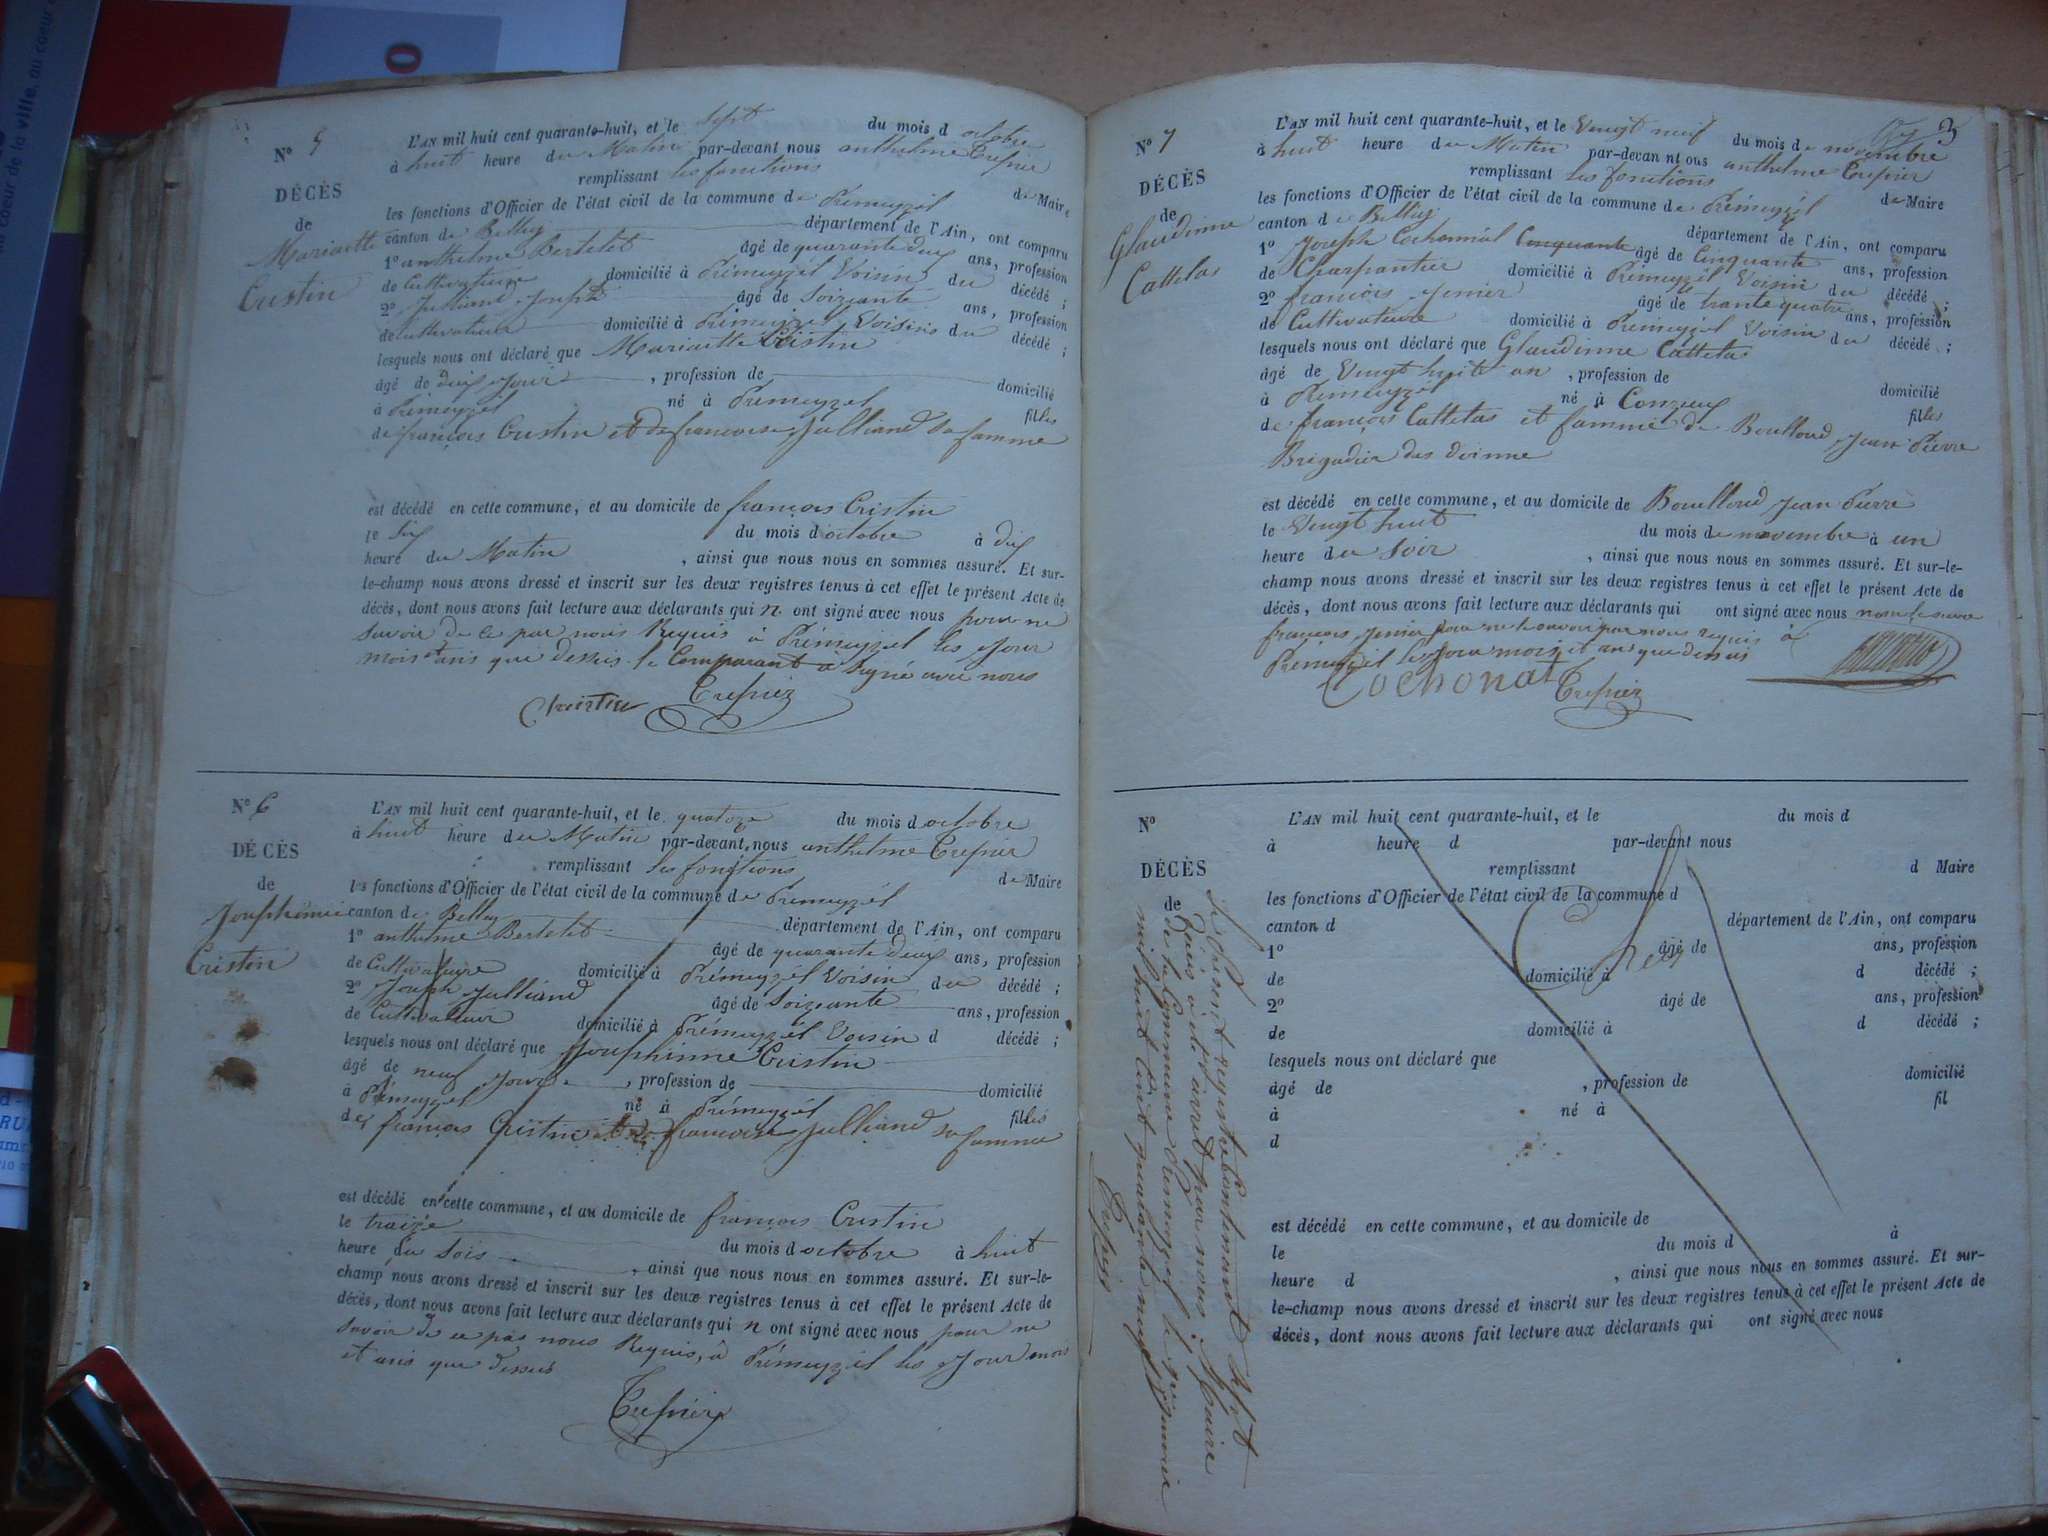 au coeur de la ville, au coeur
N° 5
DÉCÈS
de
Mariette
Cristin
L'AN mil huit cent quarante-huit, et le sept du mois d octobre
à huit heure du Matin par-devant nous anthelme Trepier
remplissant les fonctions de Maire
les fonctions d'Officier de l'état civil de la commune de Prémeyzel
canton de Belley département de l'Ain, ont comparu
1° anthelme Bertelet âgé de quarante deux ans, profession
de Cultivateure domicilié à Prémeyzel Voisin du décédé ;
2° Julliand Joseph âgé de Soizante ans, profession
de cultivateur domicilié à Prémeyzel Voisins du décédé ;
lesquels nous ont déclaré que Mariette Cristin
âgé de deux jour , profession de domicilié
à Prémeyzel né à Prémeyzel filles
de françois Cristin et de francoise Julliand sa famme
est décédé en cette commune, et au domicile de françois Cristin
le Six du mois d octobre à dix
heure du Matin , ainsi que nous nous en sommes assuré. Et sur-
le-champ nous avons dressé et inscrit sur les deux registres tenus à cet effet le présent Acte de
décès, dont nous avons fait lecture aux déclarants qui n ont signé avec nous pour ne
savoir de ce par nous Requis à Prémeyzel les jour
mois et ans que dessus le Comparant a signé avec nous
Christin Trepier
N° 6
DÉCÈS
de
Josephinne
Cristin
L'AN mil huit cent quarante-huit, et le quatoze du mois d octobre
à huit heure du Matin par-devant nous anthelme Trepier
remplissant les fonctions de Maire
les fonctions d'Officier de l'état civil de la commune de Prémeyzel
canton de Belley département de l'Ain, ont comparu
1° anthelme Bertelet âgé de quarante deux ans, profession
de Cultivateure domicilié à Prémeyzel Voisin du décédé ;
2° Joseph Julliand âgé de Soizante ans, profession
de Cultivateur domicilié à Prémeyzel Voisin d décédé ;
lesquels nous ont déclaré que Josephinne Cristin
âgé de neuf jour , profession de domicilié
à Prémeyzel né à Prémeyzel filles
de françois Cristin et de francoise Julliand sa famme
est décédé en cette commune, et au domicile de françois Cristin
le traize du mois d octobre à huit
heure du Soir , ainsi que nous nous en sommes assuré. Et sur-le-
champ nous avons dressé et inscrit sur les deux registres tenus à cet effet le présent Acte de
décès, dont nous avons fait lecture aux déclarants qui n ont signé avec nous pour ne
savoir de ce pas nous Requis, à Prémeyzel les jour mois
et ans que dessus
Trepier
3
N° 7
DÉCÈS
de
Glaudinne
Cattelas
L'AN mil huit cent quarante-huit, et le Vingt neuf du mois de novembre
à huit heure du Matin par-devan nt ous anthelme Trepier
remplissant les fonctions de Maire
les fonctions d'Officier de l'état civil de la commune de Prémeyzel
canton de Belley département de l'Ain, ont comparu
1° Joseph Cochonnat Cinquante âgé de Cinquante ans, profession
de Charpantier domicilié à Prémeyzel Voisin du décédé ;
2° françois Janier âgé de trante quatre ans, profession
de Cultivateure domicilié à Prémeyzel Voisin du décédé ;
lesquels nous ont déclaré que Glaudinne Cattelas
âgé de Vingt huite an , profession de domicilié
à Prémeyzel né à Conzieux filles
de françois Cattelas et famme de Boulloud Jean Pierre
Brigadier des doinne
est décédé en cette commune, et au domicile de Boulloud Jean Pierre
le Vingt huit du mois de novembre à un
heure du Soir , ainsi que nous nous en sommes assuré. Et sur-le-
champ nous avons dressé et inscrit sur les deux registres tenus à cet effet le présent Acte de
décès, dont nous avons fait lecture aux déclarants qui ont signé avec nous
françois Janier pour ne le savoir par nous requis à
Prémeyzel les jour mois et ans que dessus
Cochonat Trepier
N°
DÉCÈS
de
L'AN mil huit cent quarante-huit, et le du mois d
à heure d par-devant nous
remplissant d Maire
les fonctions d'Officier de l'état civil de la commune d
canton d département de l'Ain, ont comparu
1° âgé de ans, profession
de domicilié à d décédé ;
2° âgé de ans, profession
de domicilié à d décédé ;
lesquels nous ont déclaré que
âgé de , profession de domicilié
à né à fil
d
est décédé en cette commune, et au domicile de
le du mois d à
heure d , ainsi que nous nous en sommes assuré. Et sur-
le-champ nous avons dressé et inscrit sur les deux registres tenus à cet effet le présent Acte de
décès, dont nous avons fait lecture aux déclarants qui ont signé avec nous
Le Présent registre Contenant Sept
décès a été arrêté par nous Maire
de la Commune de Prémeyzel le premier
mil huit Cent quarante neuf
Trepier